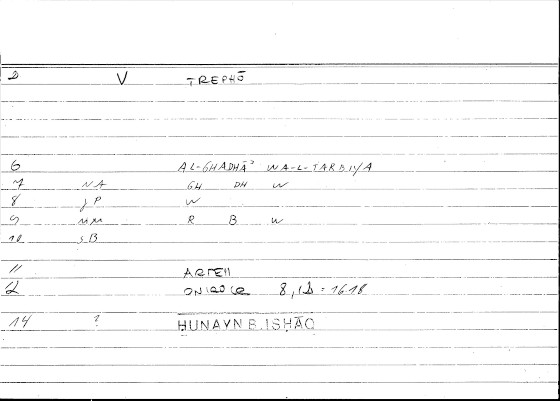 2 V TREPHŌ
6 AL-GHADHĀʾ WA-L-TARBIYA
7 NA GH DH W
8 gP W
9 MM R B W
10 SB
11 ARTEM
12 ONIROCR 8,12 = 16.18
14 ? HUNAYN B. ISHĀQ